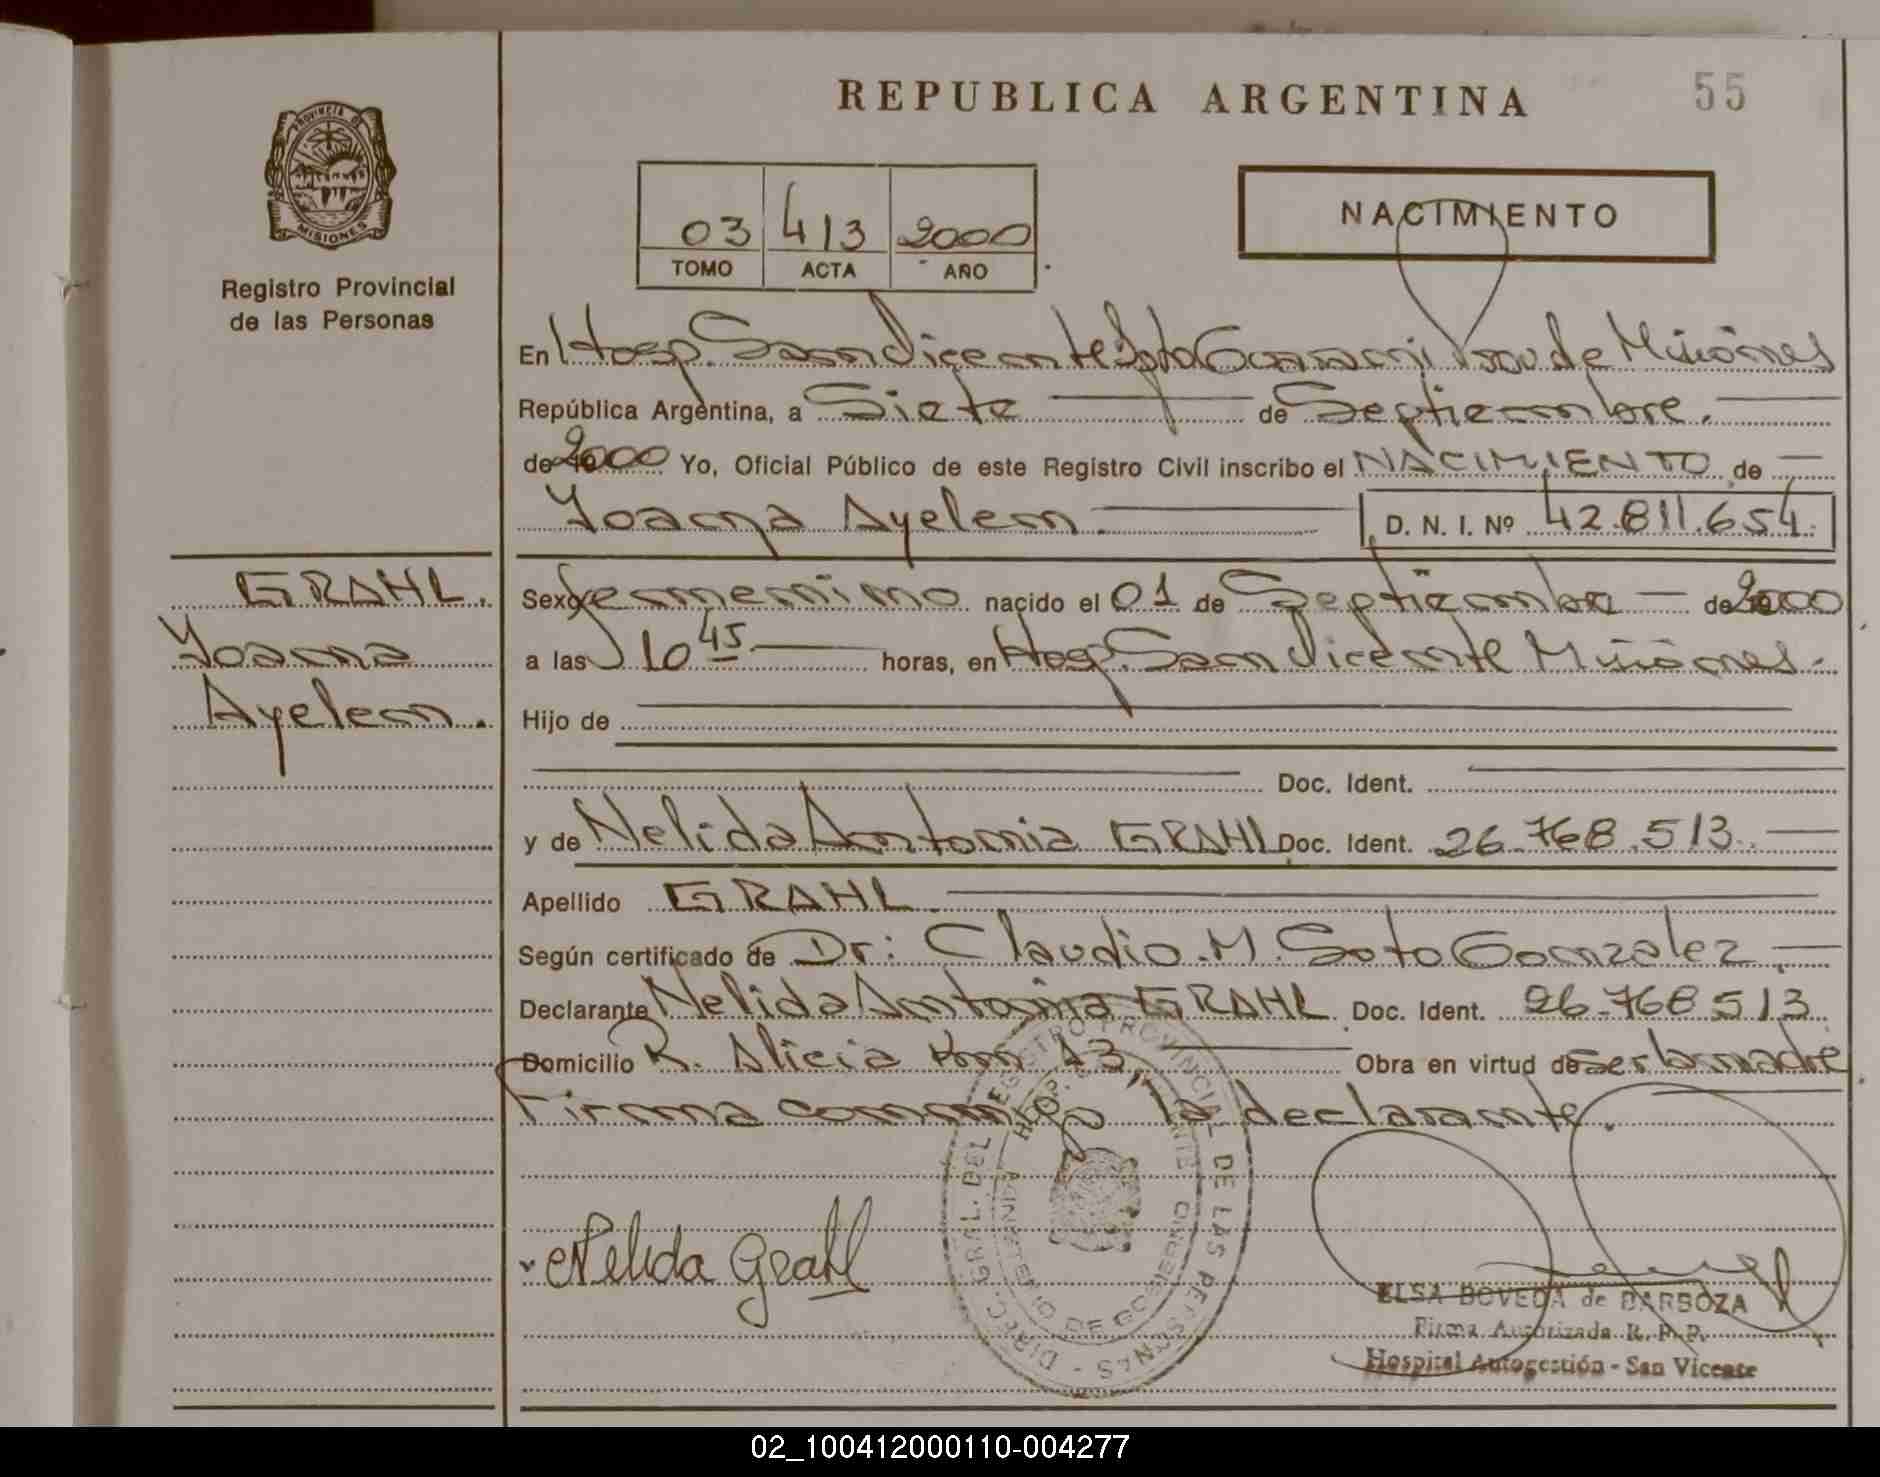 REPUBLICA ARGENTINA
55
PROVINCIA DE
MISIONES
Registro Provincial
de las Personas
03 413 2000
TOMO ACTA AÑO
NACIMIENTO
En Hosp. San Vicente Dpto Guarani Prov de Misiones
República Argentina, a Siete de Septiembre.
de 2000 Yo, Oficial Público de este Registro Civil inscribo el NACIMIENTO de
Yoana Ayelen. D. N. I. Nº 42.811.654
GRAHL.
Yoana
Ayelen.
Sexo femenino nacido el 01 de Septiembre de 2000
a las 10 45 horas, en Hosp. San Vicente Misiones.
Hijo de
Doc. Ident.
y de Nelida Antonia GRAHL Doc. Ident. 26.768.513.
Apellido GRAHL.
Según certificado de Dr: Claudio.M. Soto Gonzalez.
Declarante Nelida Antonia GRAHL Doc. Ident. 26.768513
Domicilio R. Alicia Km 13, Obra en virtud de ser la madre
Firma conmigo la declarante.
DIREC. GRAL. DEL REGISTRO PROVINCIAL DE LAS PERSONAS -
MINISTERIO DE GOBIERNO
Nelida Grahl
ELSA BOVEDA de BARBOZA
Firma Autorizada R. P. P.
Hospital Autogestión - San Vicente
02_100412000110-004277